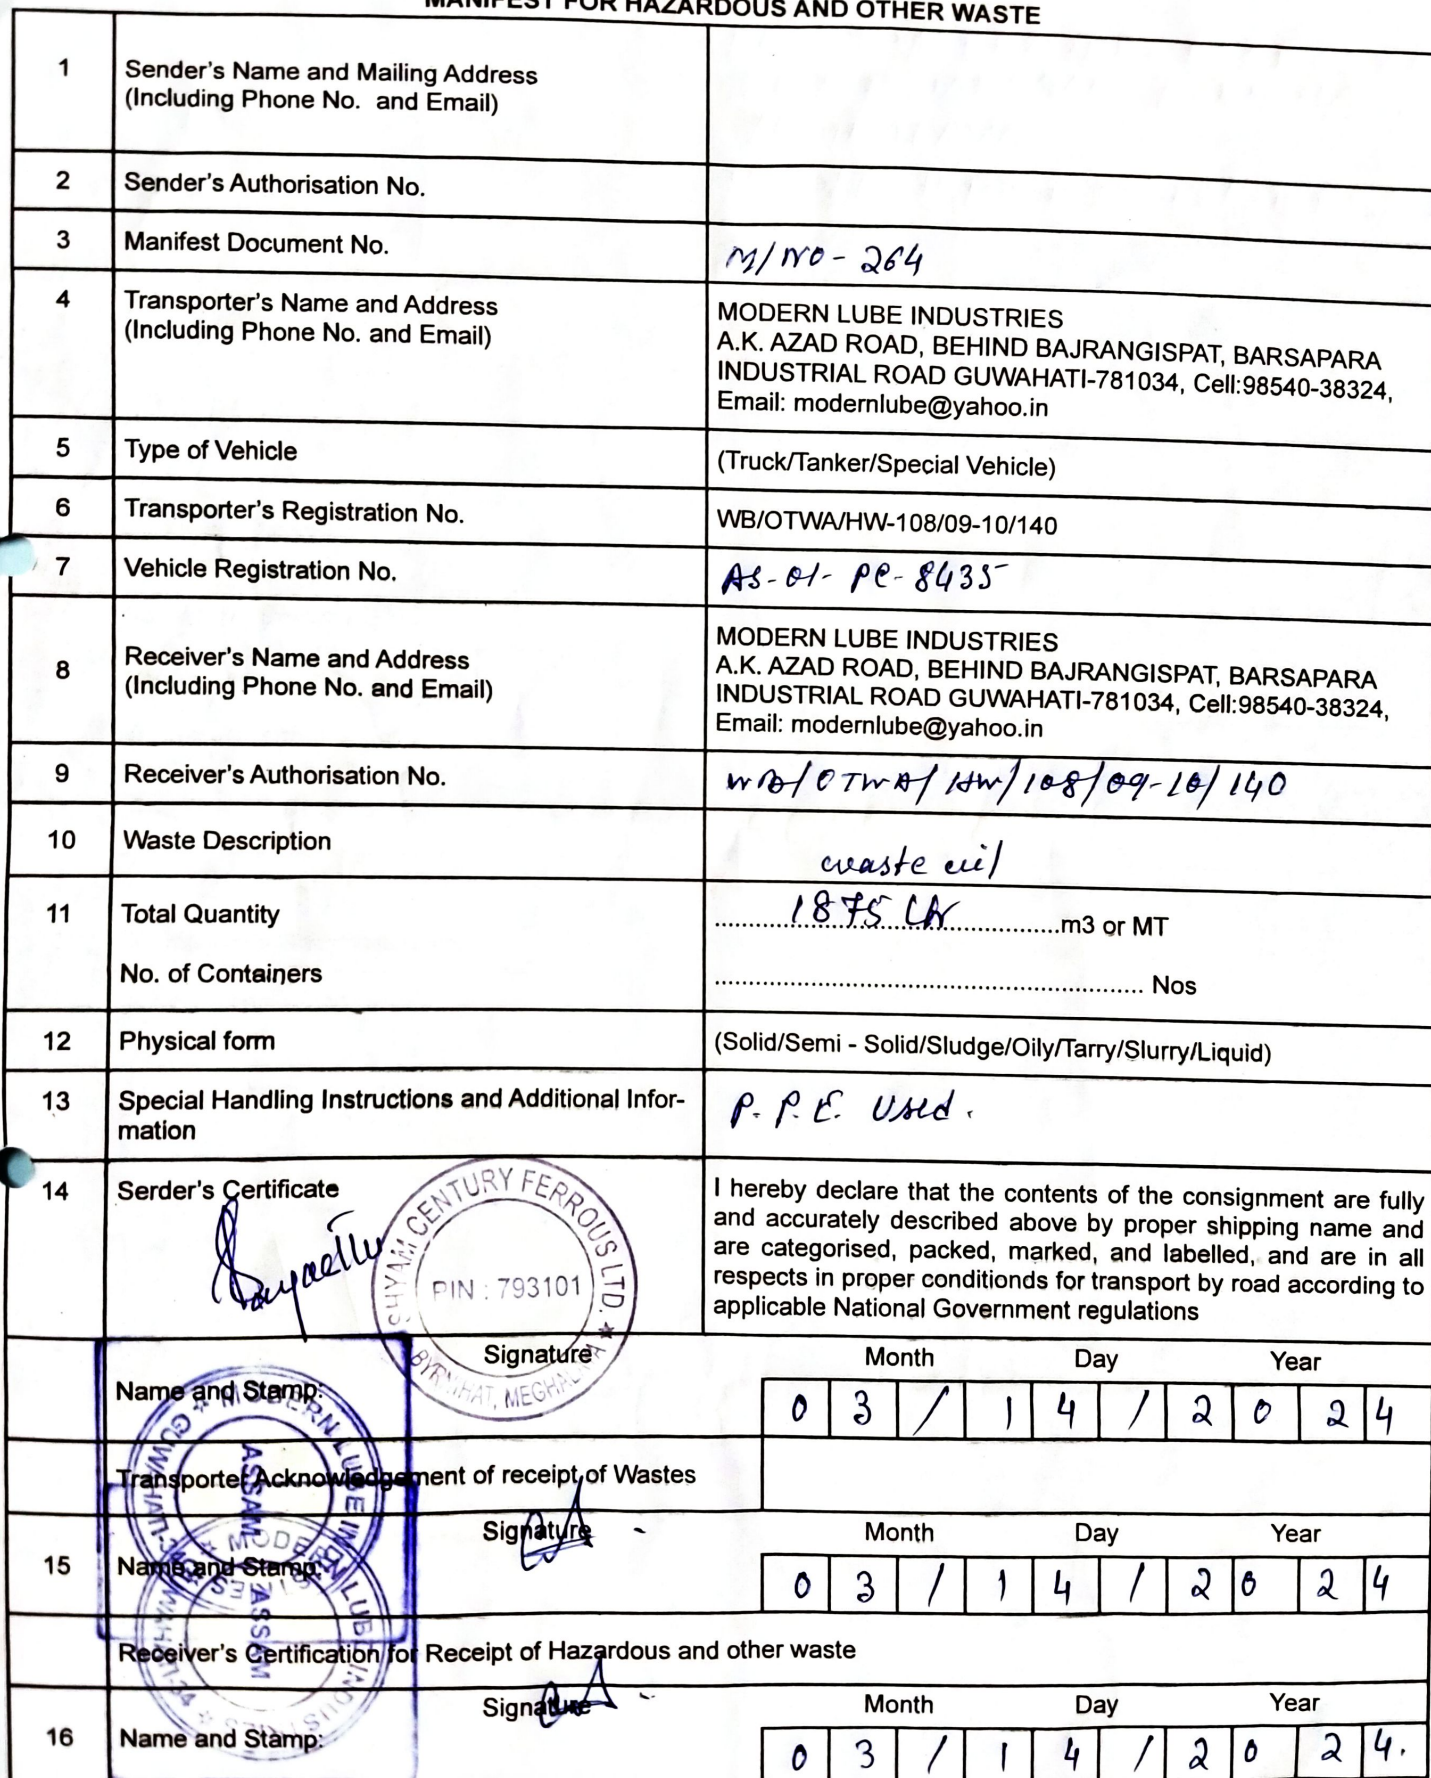 MANIFEST FOR HAZARDOUS AND OTHER WASTE
1 Sender's Name and Mailing Address
(Including Phone No. and Email)
2 Sender's Authorisation No.
3 Manifest Document No. M/NO - 264
4 Transporter's Name and Address
(Including Phone No. and Email)
MODERN LUBE INDUSTRIES
A.K. AZAD ROAD, BEHIND BAJRANGISPAT, BARSAPARA
INDUSTRIAL ROAD GUWAHATI-781034, Cell:98540-38324,
Email: modernlube@yahoo.in
5 Type of Vehicle (Truck/Tanker/Special Vehicle)
6 Transporter's Registration No. WB/OTWA/HW-108/09-10/140
7 Vehicle Registration No. AS-01-PC-8435
8 Receiver's Name and Address
(Including Phone No. and Email)
MODERN LUBE INDUSTRIES
A.K. AZAD ROAD, BEHIND BAJRANGISPAT, BARSAPARA
INDUSTRIAL ROAD GUWAHATI-781034, Cell:98540-38324,
Email: modernlube@yahoo.in
9 Receiver's Authorisation No. WB/OTWA/HW/108/09-10/140
10 Waste Description waste oil
11 Total Quantity 1875 Ltr m3 or MT
No. of Containers ........ Nos
12 Physical form (Solid/Semi - Solid/Sludge/Oily/Tarry/Slurry/Liquid)
13 Special Handling Instructions and Additional Infor-
mation
P. P. E. Used.
14 Serder's Certificate
SHYAM CENTURY FERROUS LTD. ★
PIN : 793101
BYRNIHAT, MEGHALAYA
I hereby declare that the contents of the consignment are fully
and accurately described above by proper shipping name and
are categorised, packed, marked, and labelled, and are in all
respects in proper conditionds for transport by road according to
applicable National Government regulations
Signature Month Day Year
Name and Stamp: 03/14/2024
★ MODERN LUBE INDUSTRIES ★ GUWAHATI-34
ASSAM
Transporter Acknowledgement of receipt of Wastes
Signature Month Day Year
15 Name and Stamp: 03/14/2024
★ MODERN LUBE INDUSTRIES ★ GUWAHATI-34
ASSAM
Receiver's Certification for Receipt of Hazardous and other waste
Signature Month Day Year
16 Name and Stamp: 03/14/2024.